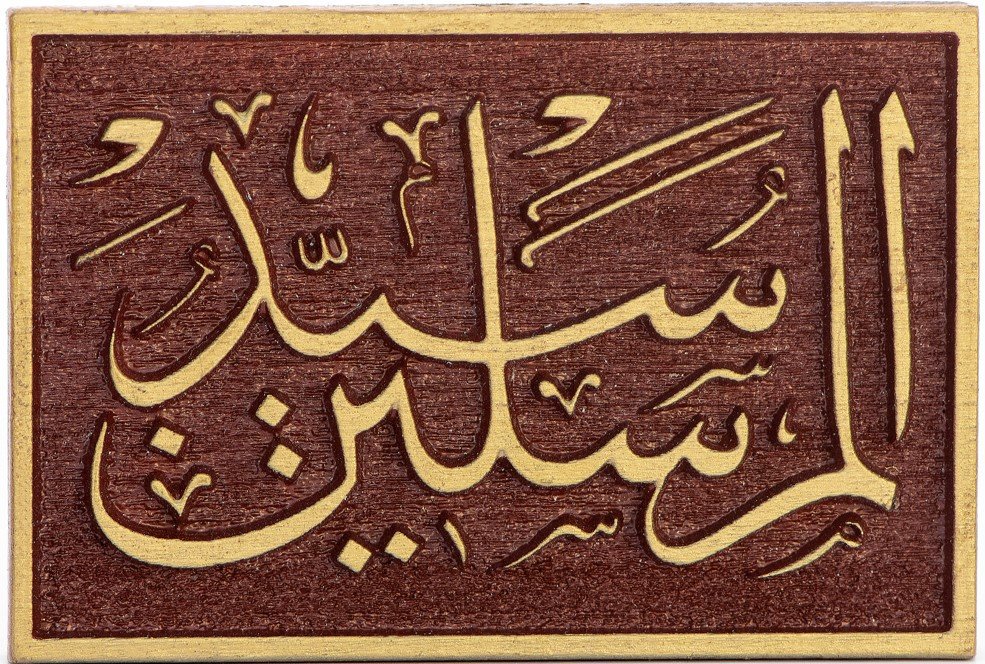 سيد المرسلين